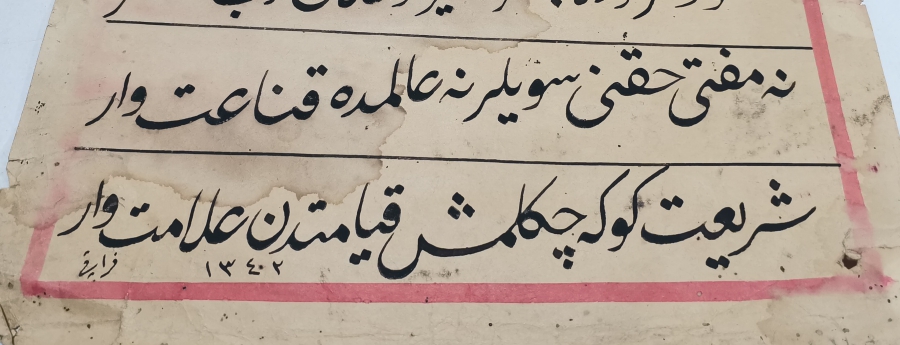 نه مفتی حقنی سویلر نه عالمده قناعت وار
شریعت کوکه چکلمش قیامتدن علامت وار
١٣٤٠٢